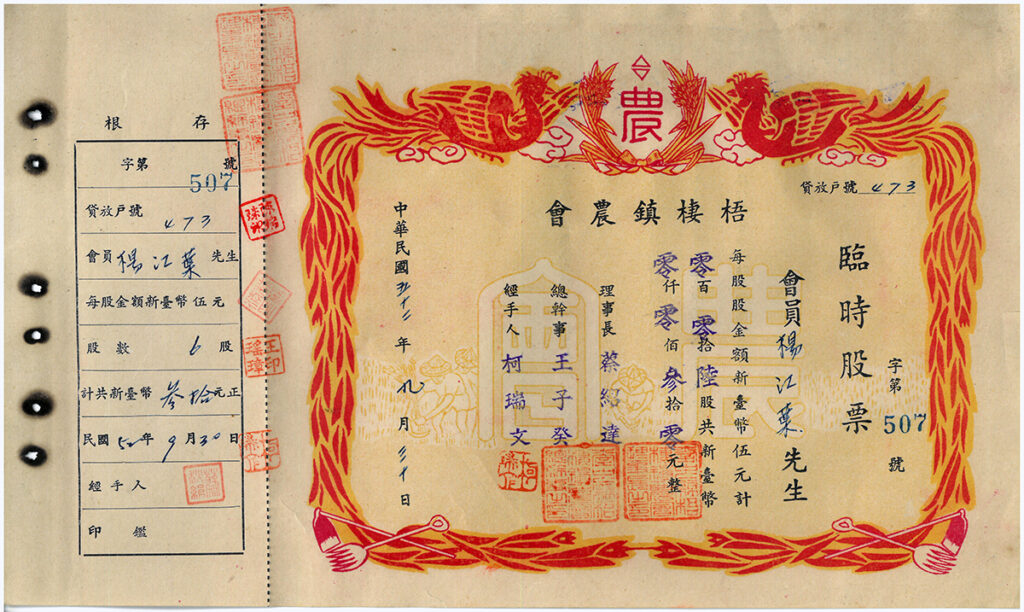 農
貸放戶號 473
梧棲鎮農會
臨時股票
字第507號
會員楊江葉先生
每股股金額新臺幣伍元計
零百零拾陸股共新臺幣
零仟零佰參拾零元整
理事長 蔡紹達
總幹事 王子癸
經手人 柯瑞文
中華民國五十二年九月三十日
農會
存根
字第 507 號
貸放戶號 473
會員 楊江葉 先生
每股金額新臺幣伍元
股數 6 股
計共新臺幣 參拾元正
民國 52 年 9 月 30 日
經手人
印鑑